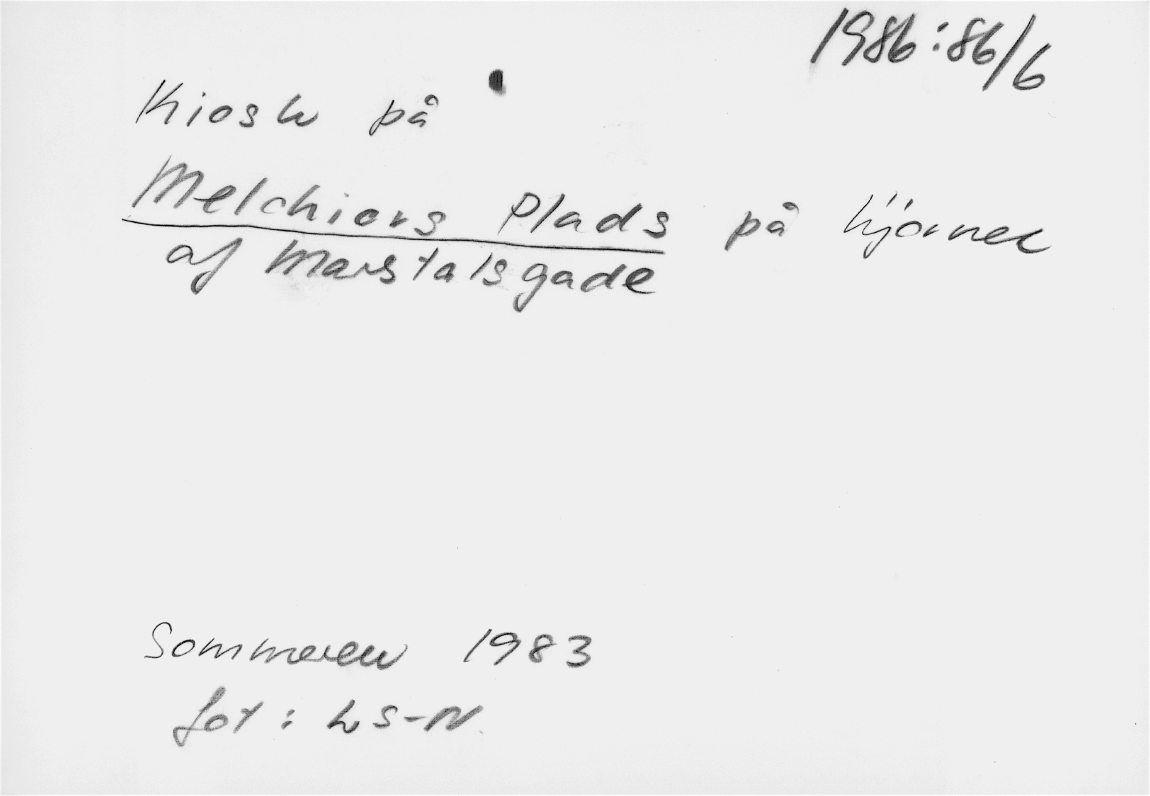 1986:86/6
Kiosk på
Melchiors Plads på hjørnet
af Marstalsgade
Sommeren 1983
fot: LS-N